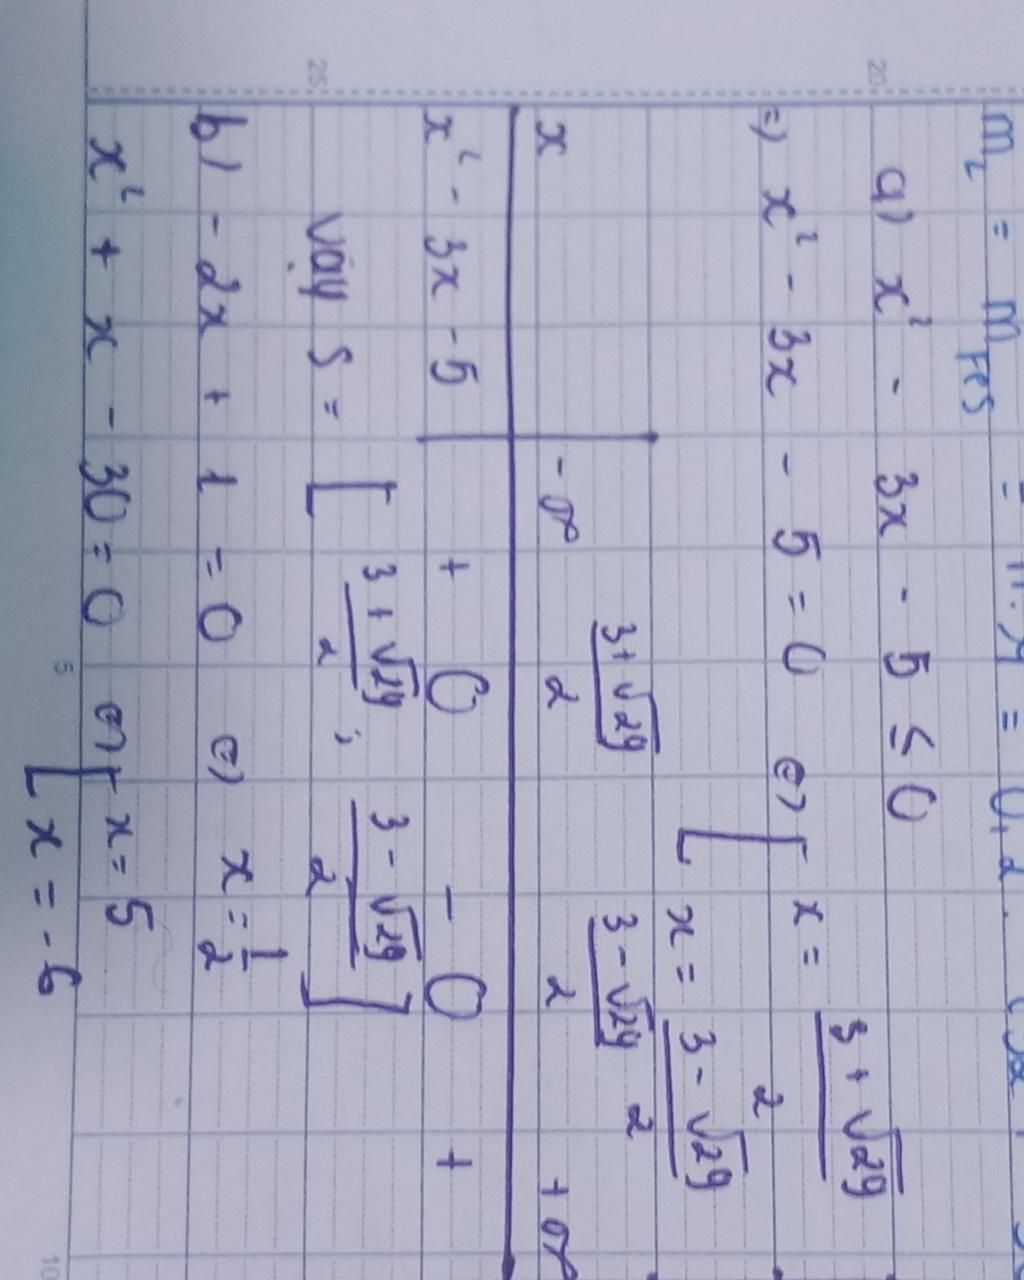 m₂ = m FeS =
a) x² - 3x - 5 ≤ 0
=) x² - 3x - 5 = 0 (=) [ x = (3 + √29)/2
x = (3 - √29)/2
x | -∞ (3+√29)/2 (3-√29)/2 +∞
x² - 3x - 5 | + 0 - 0 +
Vậy S = [ (3+√29)/2 ; (3-√29)/2 ]
b) - 2x + 1 = 0 (=) x = 1/2
x² + x - 30 = 0 (=) [ x = 5
x = -6
20
25
5
10